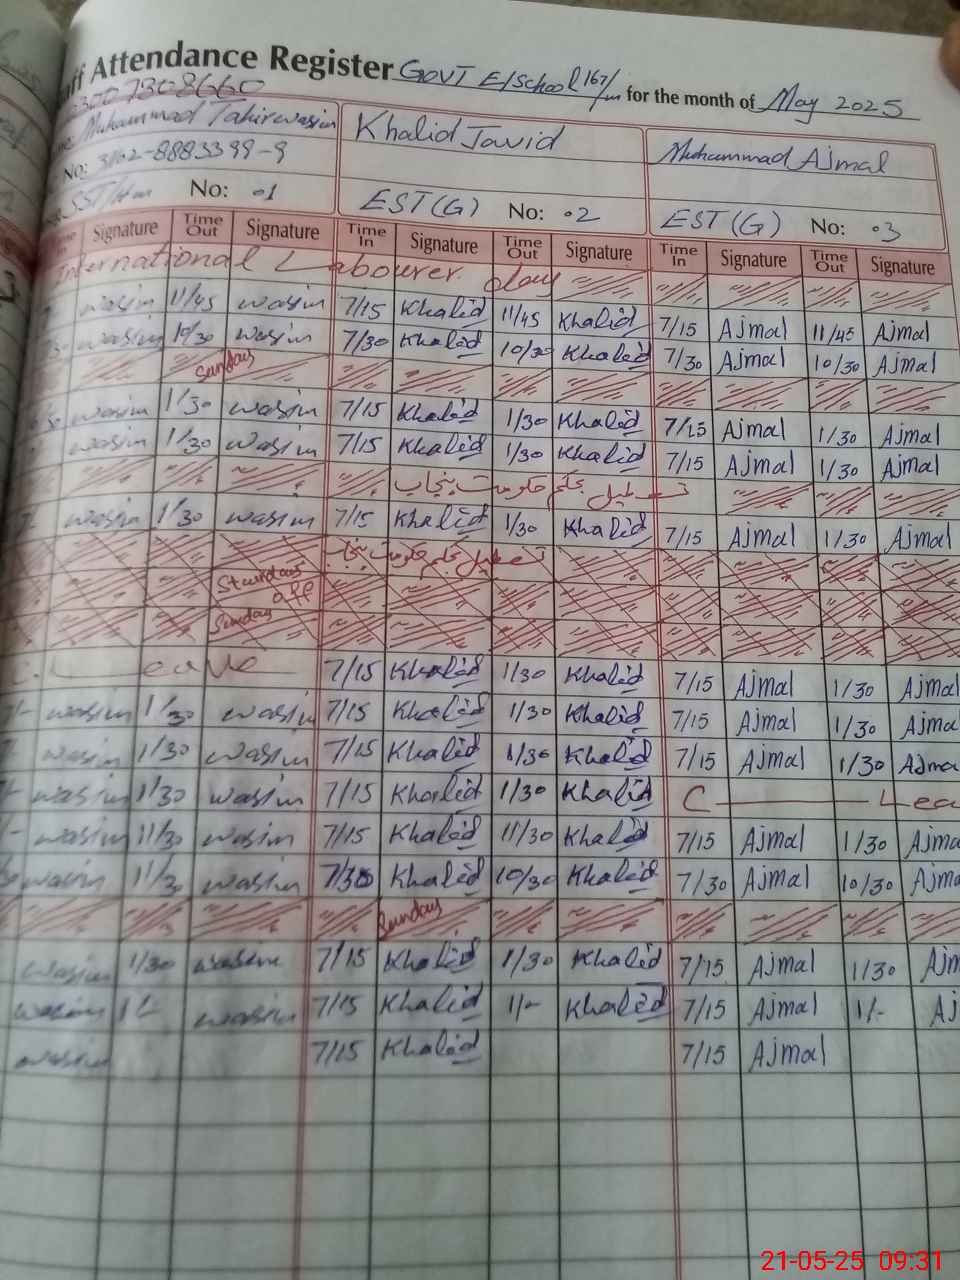 ff Attendance Register GOVT E/School 167/m for the month of May 2025
03007308660
Muhammad Tahir wasim Khalid Javid Muhammad Ajmal
No: 3 -8883399-9
SST No: .1 EST(G) No: .2 EST (G) No: .3
Signature Time Out Signature Time In Signature Time Out Signature Time In Signature Time Out Signature
International Labourer day
wasim 11/45 wasim 7/15 Khalid 11/45 Khalid 7/15 Ajmal 11/45 Ajmal
wasim 10/30 wasim 7/30 Khalid 10/30 Khalid 7/30 Ajmal 10/30 Ajmal
Sunday
wasim 1/30 wasim 7/15 Khalid 1/30 Khalid 7/15 Ajmal 1/30 Ajmal
wasim 1/30 wasim 7/15 Khalid 1/30 Khalid 7/15 Ajmal 1/30 Ajmal
تعطیل بحکم حکومت پنجاب
wasim 1/30 wasim 7/15 Khalid 1/30 Khalid 7/15 Ajmal 1/30 Ajmal
تعطیل بحکم حکومت پنجاب
Sturday off
Sunday
C. Leave 7/15 Khalid 1/30 Khalid 7/15 Ajmal 1/30 Ajmal
wasim 1/30 wasim 7/15 Khalid 1/30 Khalid 7/15 Ajmal 1/30 Ajmal
wasim 1/30 wasim 7/15 Khalid 1/30 Khalid 7/15 Ajmal 1/30 Ajma
wasim 1/30 wasim 7/15 Khalid 1/30 Khalid C Lea
wasim 11/30 wasim 7/15 Khalid 11/30 Khalid 7/15 Ajmal 1/30 Ajma
wasim 11/30 wasim 7/30 Khalid 10/30 Khalid 7/30 Ajmal 10/30 Ajma
Sunday
wasim 1/30 wasim 7/15 Khalid 1/30 Khalid 7/15 Ajmal 1/30 Ajm
wasim 1/- wasim 7/15 Khalid 1/- Khalid 7/15 Ajmal 1/- Aj
wasim 7/15 Khalid 7/15 Ajmal
21-05-25 09:31